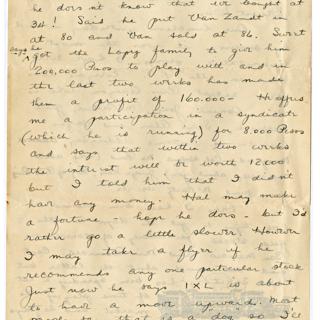 he doesn't know that we bought at
34! Said he put Van Zandt in
at 80 and Van sold at 86. Swort
says he
got the Lopez family to give him
200,000 Pesos to play with and in
the last two weeks has made
them a profit of 160.000 - He offers
me a participation in a syndicate
(which he is running) for 8.000 Pesos
and says that within two weeks
the interest will be worth 12000
but I told him that I didn't
have any money. Hal may make
a fortune - hope he does - but I'd
rather go a little slower. However
I may take a flyer if he
recommends any one particular stock
Just now he says IXL is about
to have a move upward. Most
that is a dog so I'll